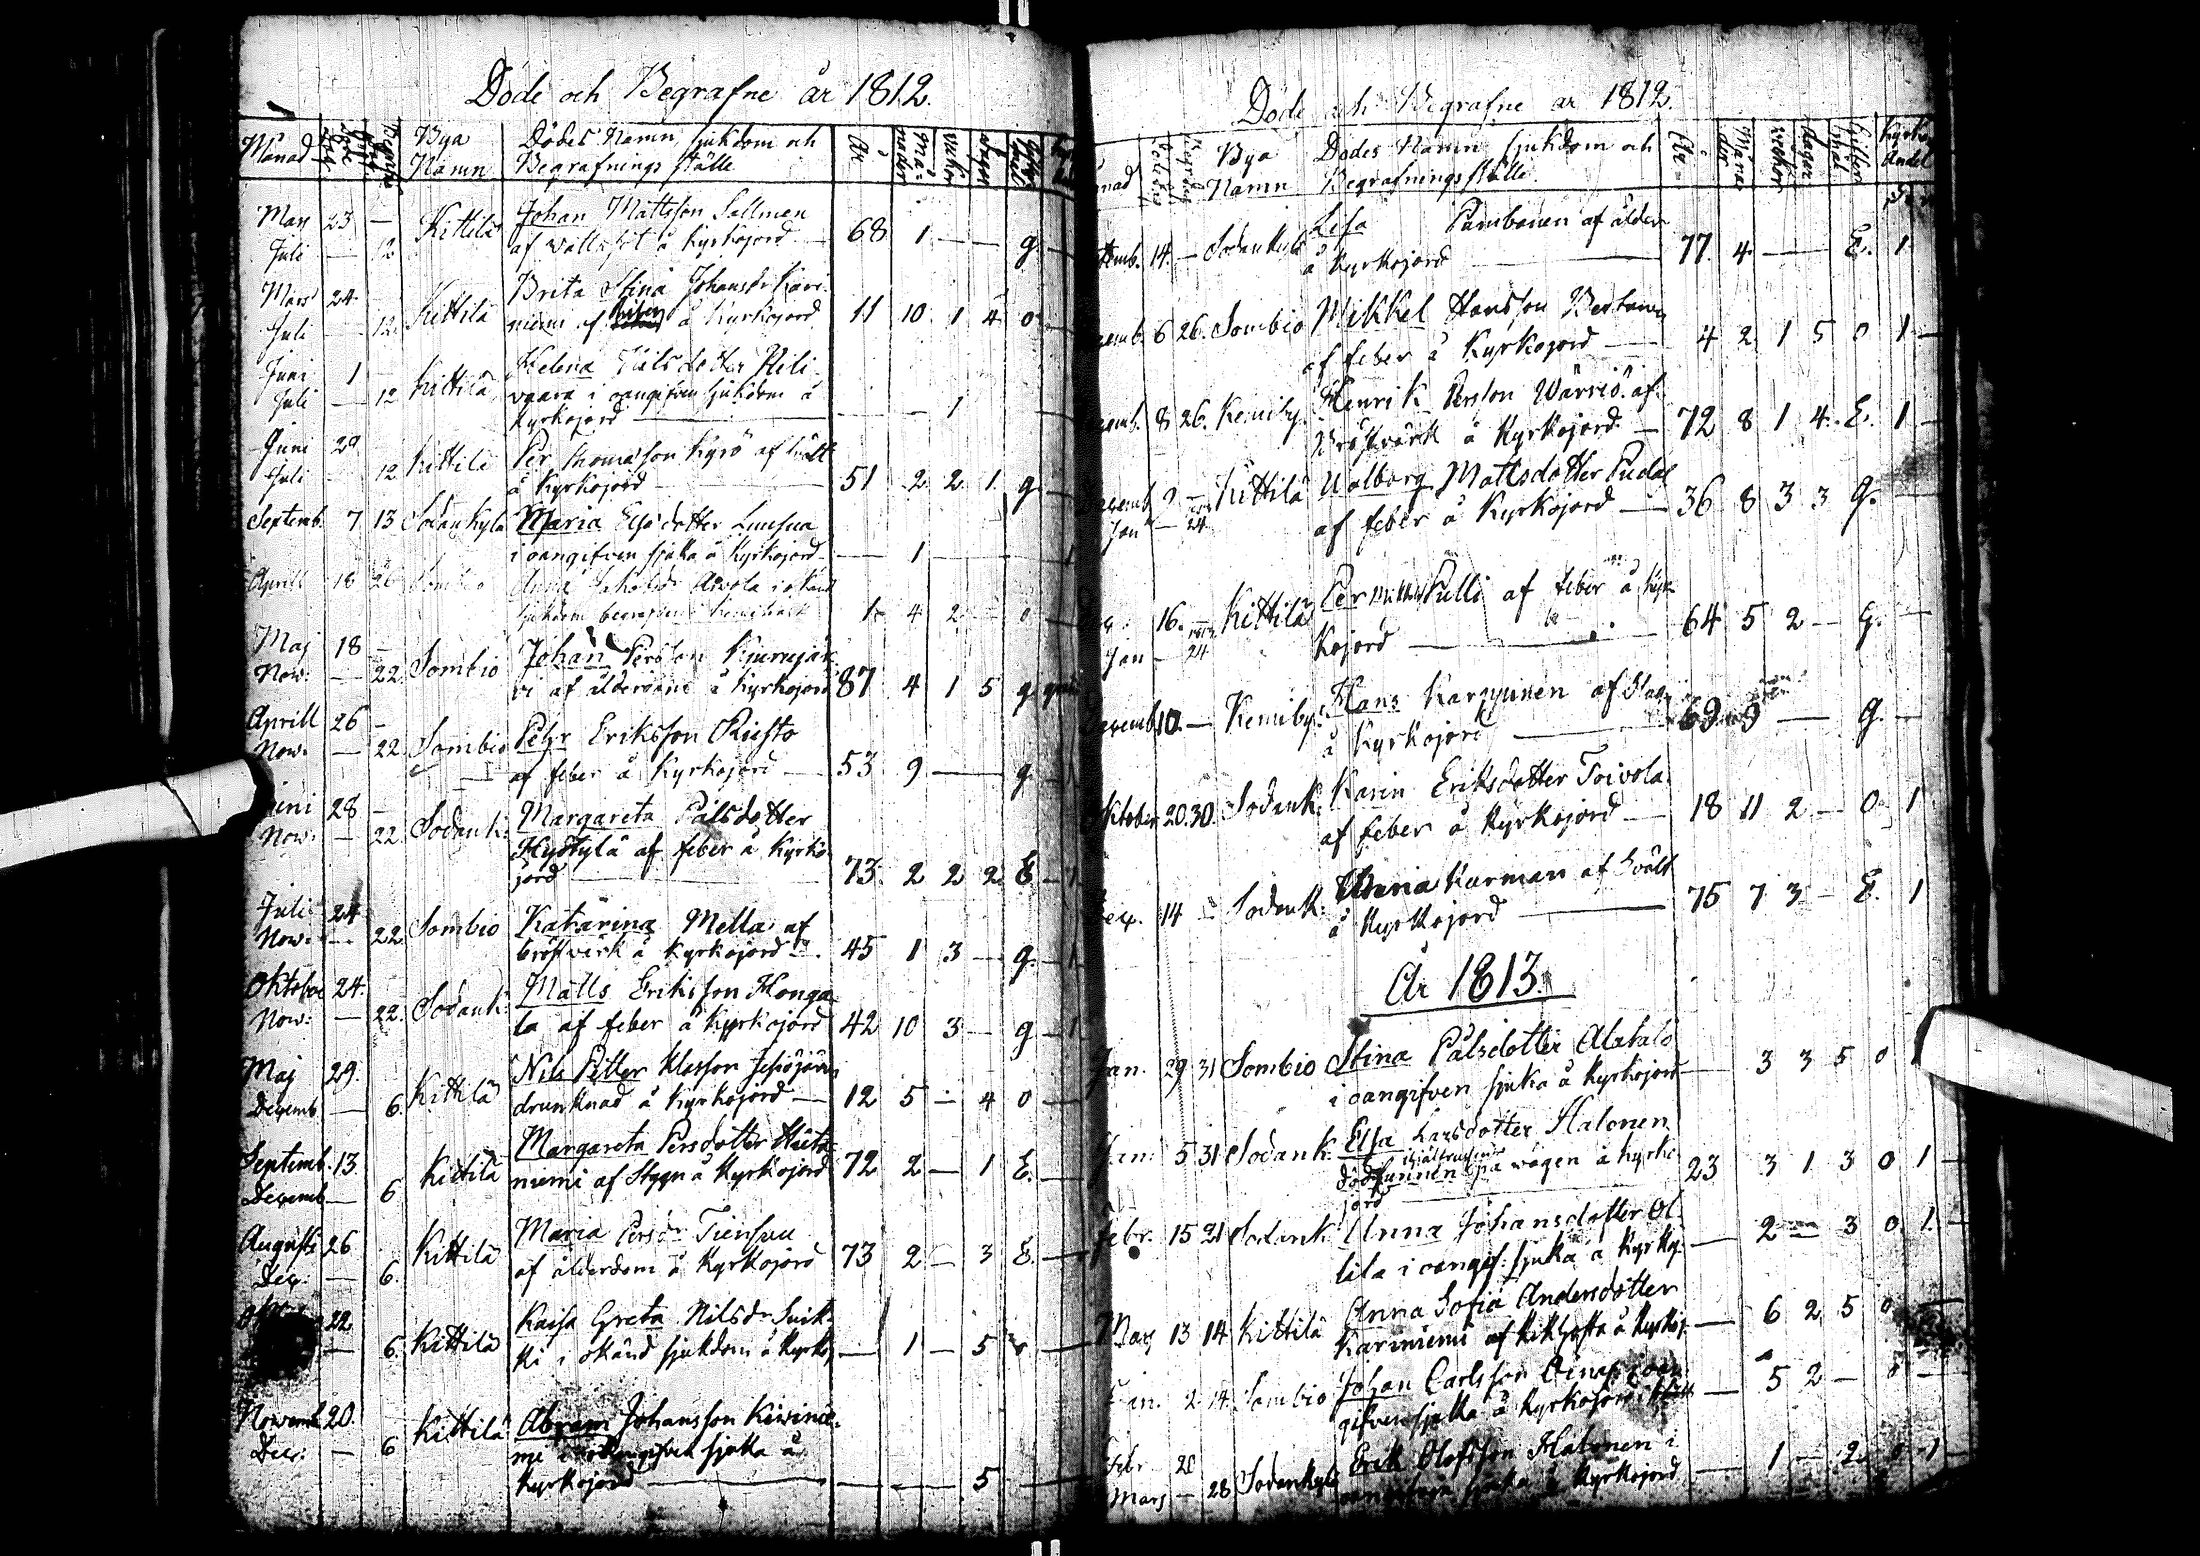 Döde och Begrafne år 1812.
Månad Bya Namn Dödes Namn, sjukdom och Begrafnings ställe År Månader Wekor dagar
May 23 — Kittilä Johan Mattsson Sallmen
Juli — 12 af wattusot å Kyrkojord — 68 1 — — g.
Mars 24. Brita Stina Johansdr Kari-
Juli — 12. Kittilä niemi af å Kyrkojord 11 10 1 4 o
Juni 1 Helena Nilsdotter
Juli — 12 Kittilä vaara i oangifven sjukdom å
Kyrkojord — — — 1
Juni 29
Juli — 12 Kittilä Per Thomasson Kyrö af
å Kyrkojord — 51 2 2 1 g.
Septemb. 7 13 Sodankylä Maria Elsadotter
i oangifven sjuka å Kyrkojord — 1
Aprill 18 26 Sombio Anna Arvola i okänd
sjukdom begrafven 1 4 2 — o
Maj 18 —
Now: — 22 Sombio Johan Persson Kjurujär-
vi af ålderdom å Kyrkojord 87 4 1 5 g.
Aprill 26 —
Now: — 22 Sombio Pehr Eriksson Riesto
af feber å Kyrkojord — 53 9 — — g.
Juni 28 —
Now: — 22 Sodank: Margareta Pålsdotter
Hyötylä af feber å Kyrko-
jord — 73. 2 2 2 E. — 1.
Juli 24
Now: — 22 Sombio Katarina Mella af
bröstwärk å Kyrkojord — 45 1 3 — g. — 1
Oktober 24.
Now: — 22. Sodank: Matts Eriksson Honga-
la af feber å Kyrkojord 42 10 3 — g — 1
Maj 29. Nils Petter Klasson Jesiöjärvi
Decemb. — 6. Kittilä drunknad å Kyrkojord — 12 5 — 4 o —
Septemb. 13. Margareta Persdotter Hieta-
Decemb — 6 Kittilä niemi af Stygn å Kyrkojord 72 2 — 1 E. —
Augusti 26 Maria Persdr Tiensuu
Dec: — 6. Kittilä af ålderdom å Kyrkojord 73 2 — 3 E. —
22 Kajsa Greta Nilsdr Suik-
— 6. Kittilä ki i okänd sjukdom å Kyrkoj. — 1 — 5 o —
Nowemb 20. Abram Johansson Kiwinie-
Dec: — 6 Kittilä mi i sjuka å
Kyrkojord — — — — 5
Döde och Begrafne år 1812.
Bya Namn Dödes Namn, sjukdom och Begrafnings ställe. År Månader wekor dagar
14. — Sodankylä Lisa Pumbanen af ålder
å Kyrkojord — 77. 4. — — E. 1
6 26. Sombio Mikkel Hansson
af feber å Kyrkojord — 4 2 1 5 o 1 —
8 26. Kemiby. Henrik Persson Wärriö af
Bröstwärk å Kyrkojord. — 72 8 1 4. E. 1 —
Decemb 2 — Kittilä Walborg Mattsdotter Pudas
Jan — 24 af feber å Kyrkojord — 36 8 3 3 g. —
16. — Kittilä Per Pulli af feber å Kyr-
Jan — 24 kojord — 64 5 2 — g. —
Decemb 10. — Kemiby. Hans Karppinen af Slag
å Kyrkojord — 69 9 — g. —
Oktober 20. 30. Sodank. Karin Eriksdotter Toivola.
af feber å Kyrkojord — 18 11 2 — o. 1
Dec. 14 — Sodank: Anna Kurman af Svält
å Kyrkojord — 75 7 3 — E. 1
År 1813.
Jan. 29 31 Sombio Stina Pålsdotter Alatalo
i oangifven sjuka å Kyrkojord — 3 3 5 o 1
Jan: 5 31 Sodank Elsa Larsdotter Halonen
dödfunnen på wägen å Kyrko-
jord 23 3 1 3 o 1 —
Febr. 15 21 Sodank Anna Johansdotter Ol-
lila i oangif: sjuka å Kyrkoj. — 2 — 3 o 1. —
Mars 13 14 Kittilä Anna Sofia Andersdotter
Kariniemi af Kikhosta å Kyrkoj. — 6 2 5 o
Jan. 2 14. Sombio Johan Carlsson i oan-
gifven sjuka å Kyrkojord — 5 2 — o —
Febr 20 Erik Olofsson Halonen i
Mars — 28 Sodankylä oangifven sjuka å Kyrkojord — 1 — 2 o 1 —